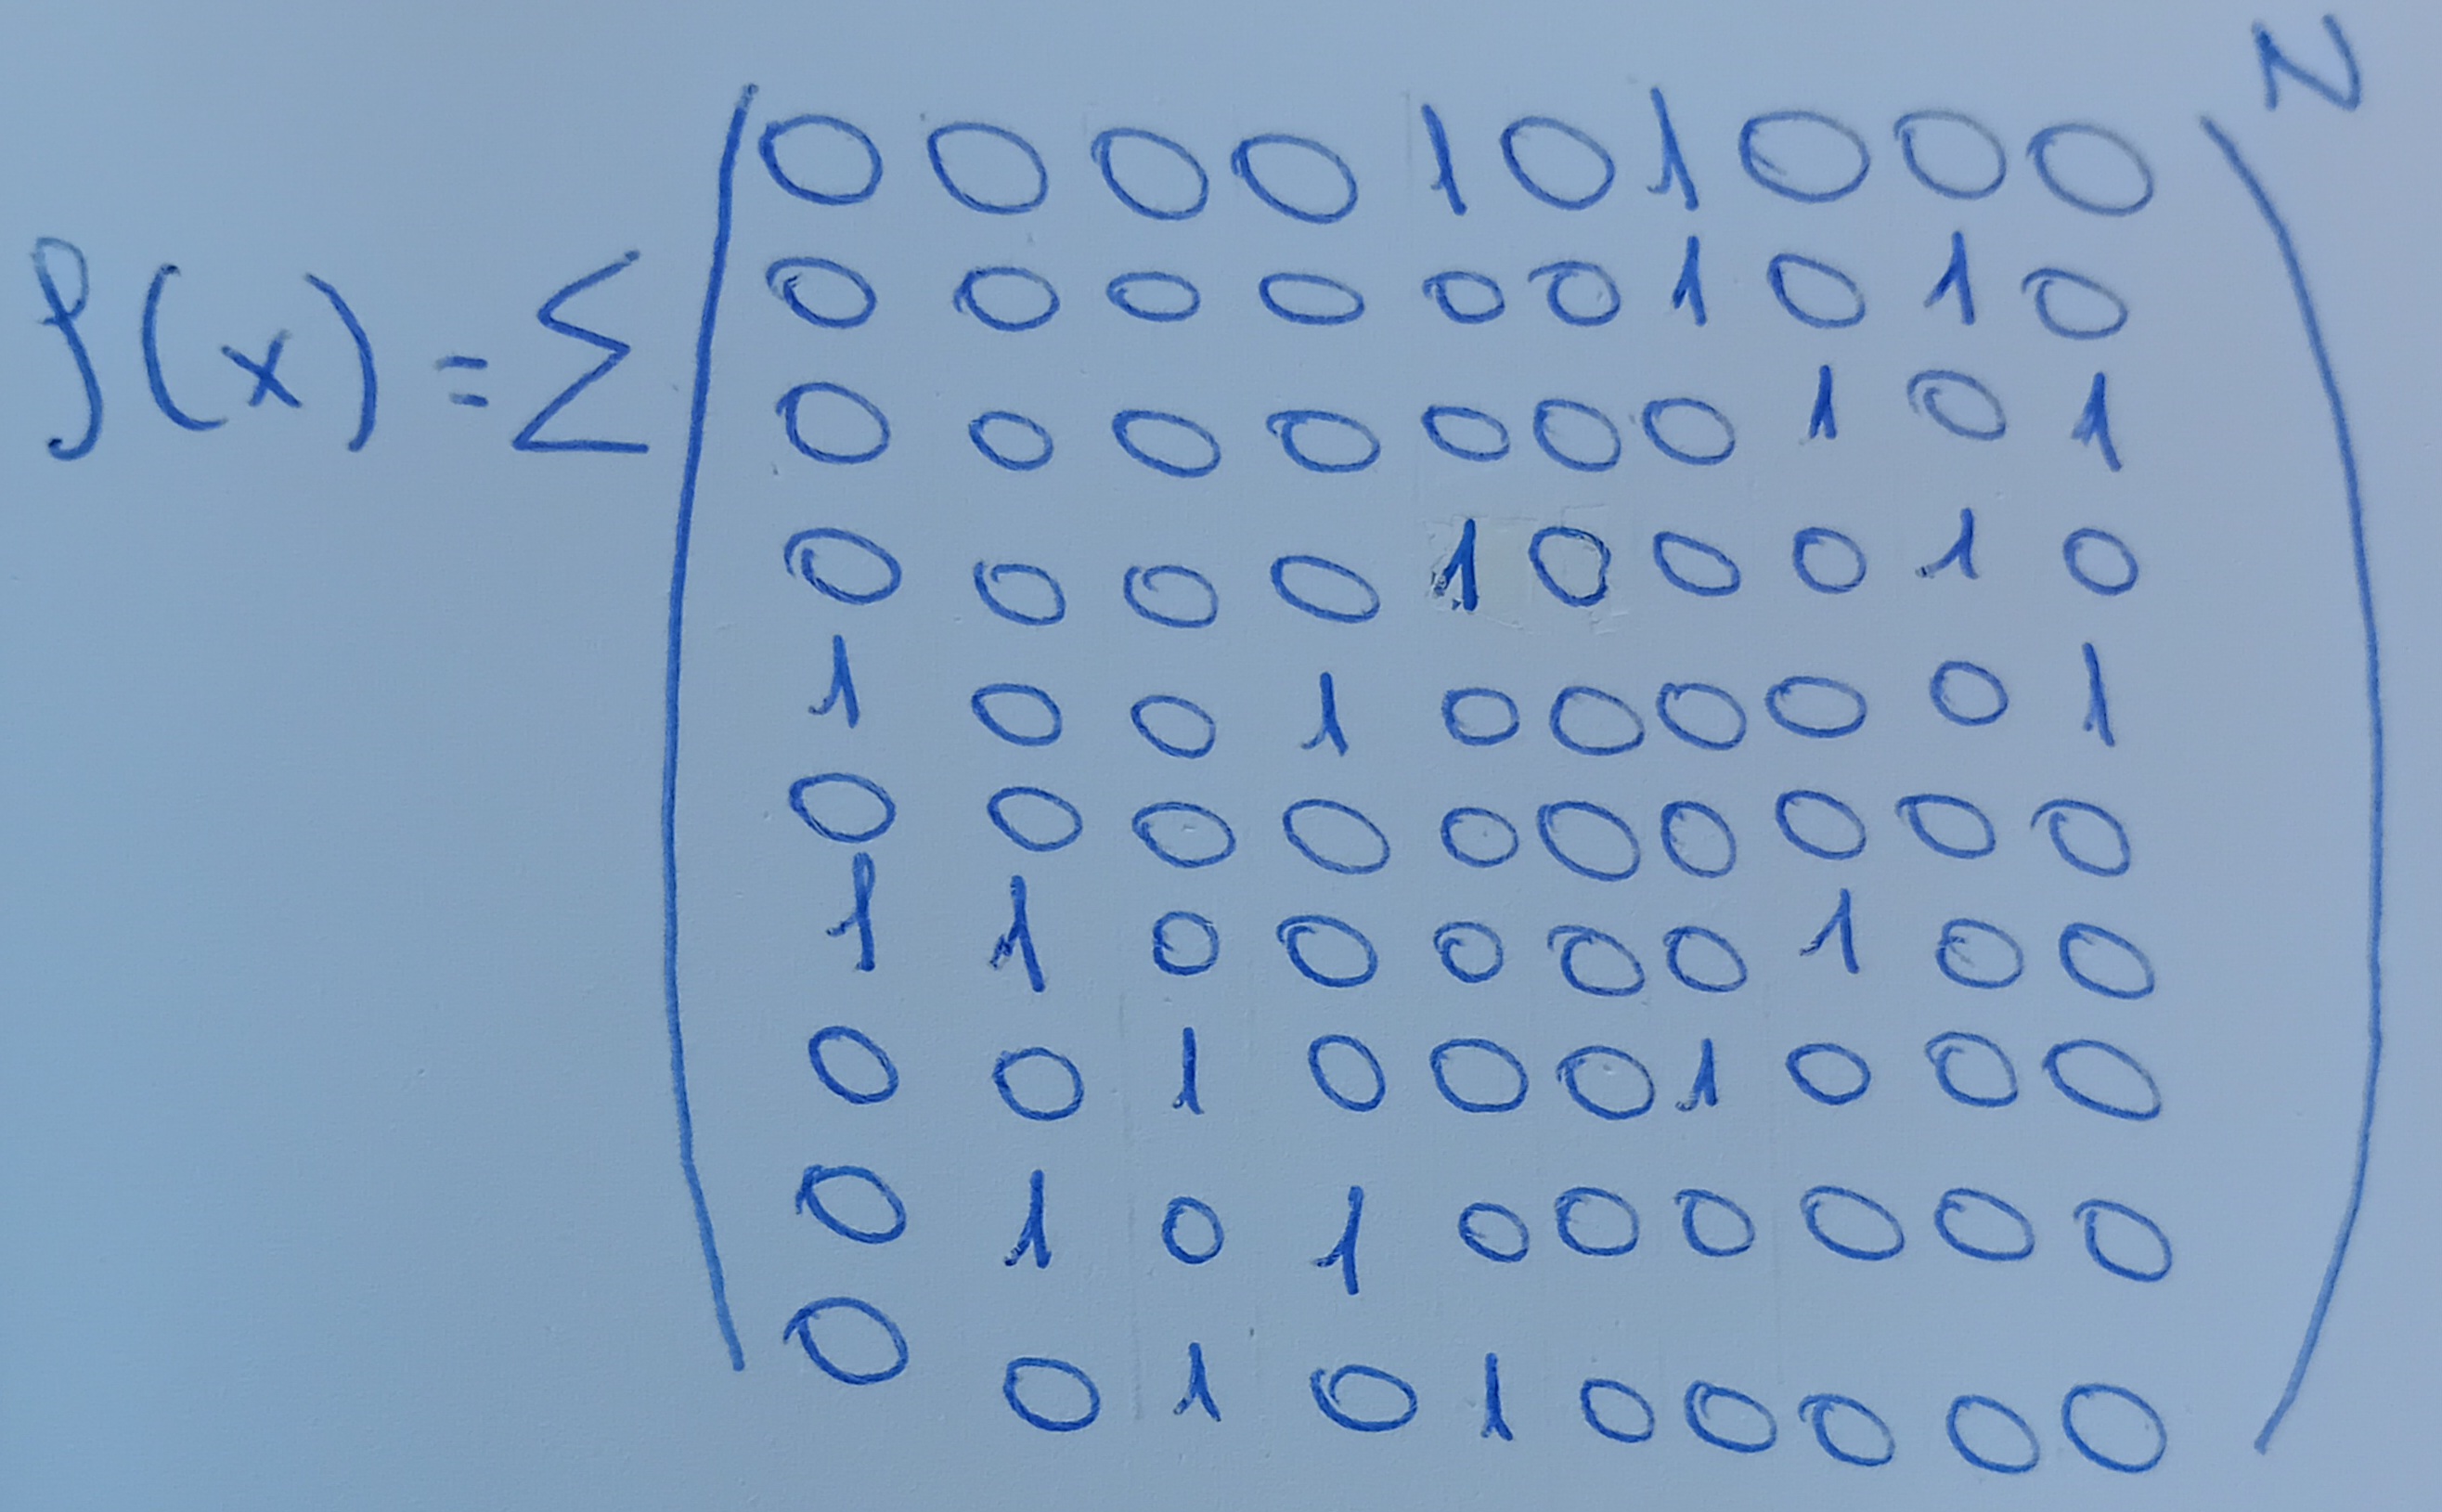 N
0 0 0 0 1 0 1 0 0 0
0 0 0 0 0 0 1 0 1 0
f(x) = Σ
0 0 0 0 0 0 0 1 0 1
0 0 0 0 1 0 0 0 1 0
1 0 0 1 0 0 0 0 0 1
0 0 0 0 0 0 0 0 0 0
1 1 0 0 0 0 0 1 0 0
0 0 1 0 0 0 1 0 0 0
0 1 0 1 0 0 0 0 0 0
0 0 1 0 1 0 0 0 0 0